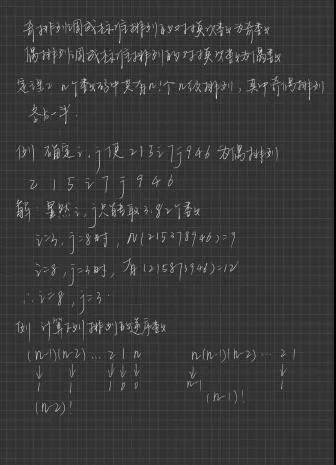 奇排列调成标准排列的对换次数为奇数
偶排列调成标准排列的对换次数为偶数
定理2 n个数码中共有n!个n级排列，其中奇偶排列
各占一半.
例 确定i, j使 215i7j946 为偶排列
2 1 5 i 7 j 9 4 6
解: 显然i, j只能取3.8 2个数
i=3, j=8时, N(215378946)=9
i=8, j=3时, 有(215873946)=12
∴ i=8, j=3.
例 计算下列排列的逆序数
(n-1)(n-2) … 2 1 n n(n-1)(n-2) … 2 1
↓ ↓ ↓ ↓ ↓ ↓ ↓
1 1 1 0 0 n-1 1
(n-2)! (n-1)!